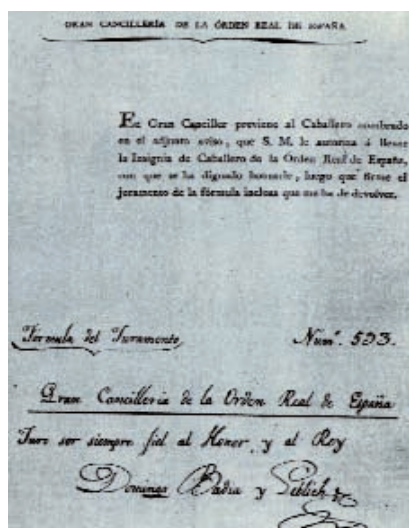 GRAN CANCILLERÍA DE LA ÓRDEN REAL DE ESPAÑA
EL Gran Canciller previene al Caballero nombrado
en el adjunto aviso, que S. M. le autoriza á llevar
la Insignia de Caballero de la Orden Real de España,
con que se ha dignado honrarle, luego que firme el
juramento de la fórmula inclusa que me ha de devolver.
Formula del Juramento Num.º 593.
Gran Cancilleria de la Orden Real de España
Juro ser siempre fiel al Honor, y al Rey
Domingo Badia y Leblich